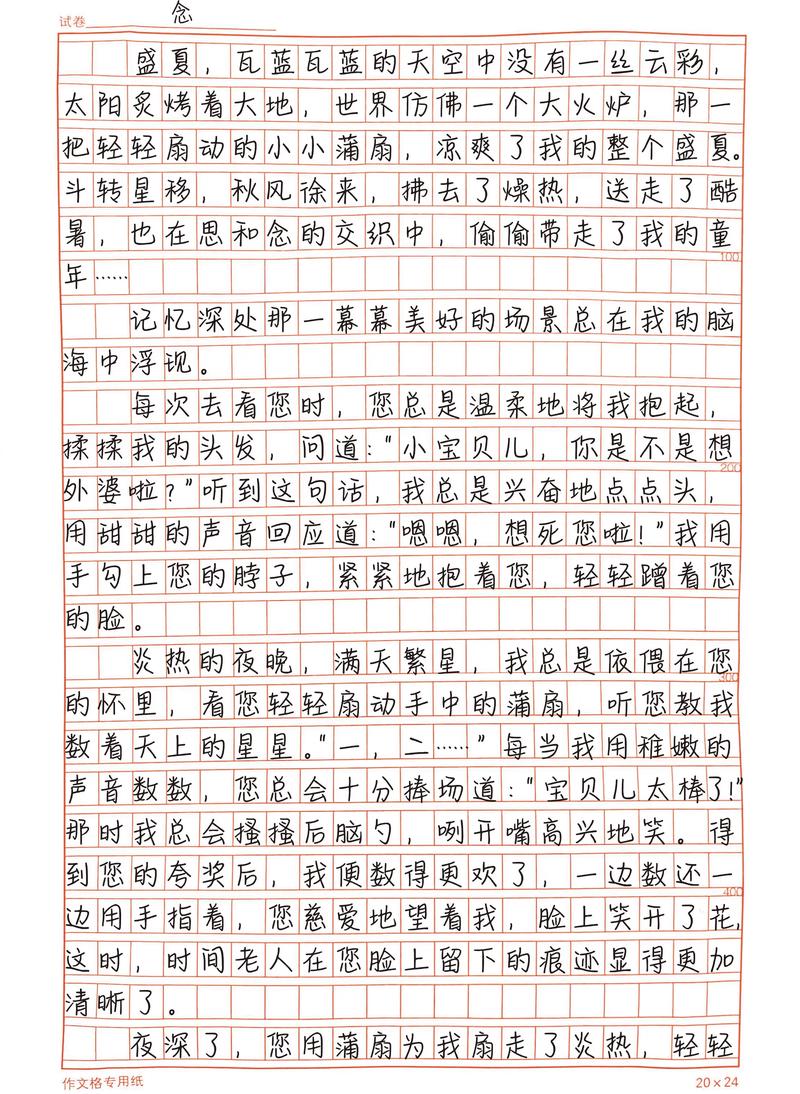 试卷 念
盛夏，瓦蓝瓦蓝的天空中没有一丝云彩，
太阳炙烤着大地，世界仿佛一个大火炉，那一
把轻轻扇动的小小蒲扇，凉爽了我的整个盛夏。
斗转星移，秋风徐来，拂去了燥热，送走了酷
暑，也在思和念的交织中，偷偷带走了我的童
100
年……
记忆深处那一幕幕美好的场景总在我的脑
海中浮现。
每次去看您时，您总是温柔地将我抱起，
揉揉我的头发，问道：“小宝贝儿，你是不是想
200
外婆啦？”听到这句话，我总是兴奋地点点头，
用甜甜的声音回应道：“嗯嗯，想死您啦！”我用
手勾上您的脖子，紧紧地抱着您，轻轻蹭着您
的脸。
炎热的夜晚，满天繁星，我总是依偎在您
300
的怀里，看您轻轻扇动手中的蒲扇，听您教我
数着天上的星星。“一，二……”每当我用稚嫩的
声音数数，您总会十分捧场道：“宝贝儿太棒了！”
那时我总会搔搔后脑勺，咧开嘴高兴地笑。得
到您的夸奖后，我便数得更欢了，一边数还一
400
边用手指着，您慈爱地望着我，脸上笑开了花，
这时，时间老人在您脸上留下的痕迹显得更加
清晰了。
夜深了，您用蒲扇为我扇走了炎热，轻轻
作文格专用纸 20×24